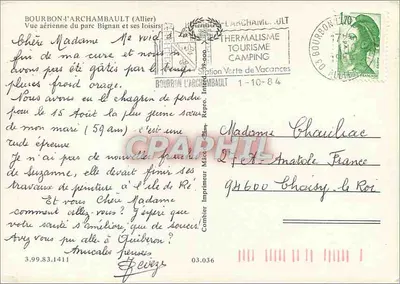 BOURBON-L'ARCHAMBAULT (Allier)
Vue aérienne du parc Bignan et ses loisirs
Chère Madame Me voici à la
fin de ma cure et nous n'
avons pas été gâtés par le temps
pluies froid orage.
Nous avons eu le chagrin de perdre
pour le 15 Août la plus jeune sœur
de mon mari (59 ans) c'est une
rude épreuve
Je n'ai pas de nouvelles
de Suzanne, elle devait finir ses
travaux de peinture à l'île de Ré
Et vous Chère Madame
comment allez-vous? J'espère que
votre santé s'améliore, que de soucis
Avez vous pu aller à Quiberon?
Amicales pensées
3.99.83.1411
03.036
Combier Imprimeur Mâcon
L'ARCHAMBAULT
THERMALISME
TOURISME
CAMPING
Station Verte de Vacances
BOURBON L'ARCHAMBAULT
1-10-84
1,70
03 BOURBON
CPARAMA.COM
Madame Chauliac
27 A Anatole France
94600 Choisy le Roi